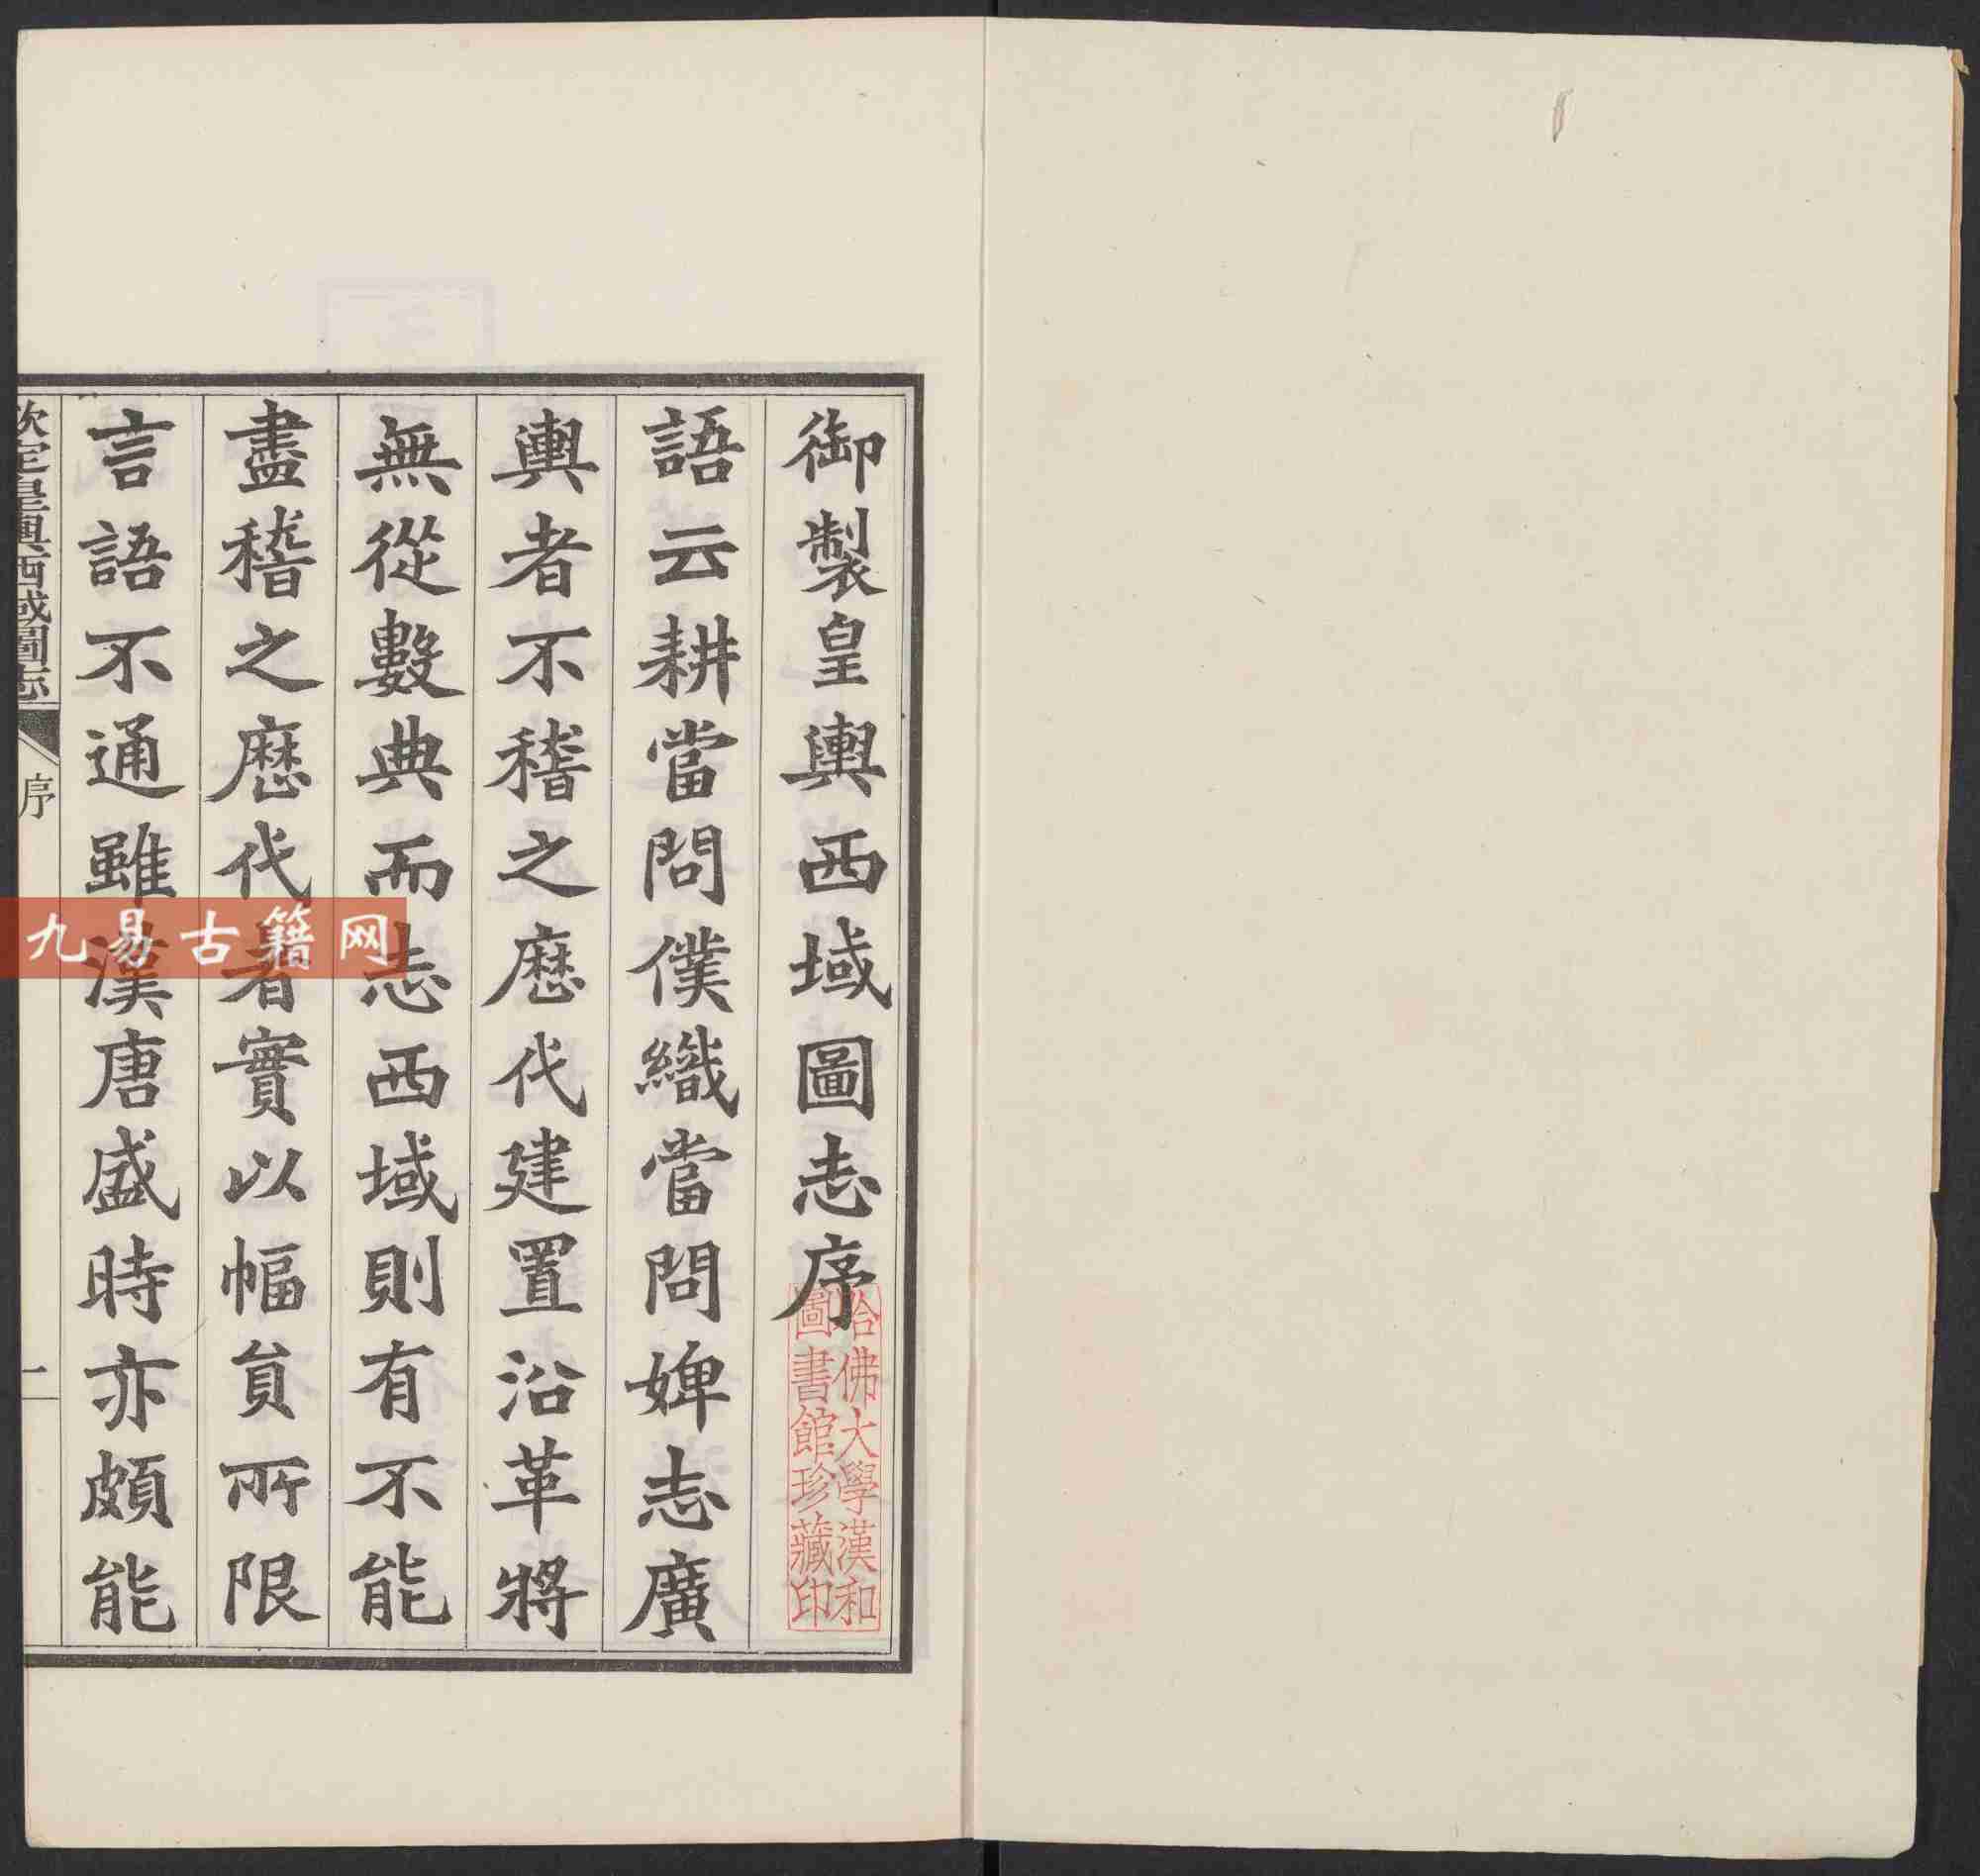 御製皇輿西域圖志序
語云耕當問僕織當問婢志廣
輿者不稽之歷代建置沿革將
無從數典而志西域則有不能
盡稽之歷代者實以幅員所限
言語不通雖漢唐盛時亦頗能
欽定皇輿西域圖志
序
一
哈佛大學漢和
圖書館珍藏印
九易古籍网